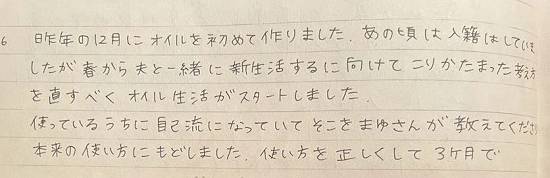 6 昨年の12月にオイルを初めて作りました。あの頃は入籍はしていま
したが春から夫と一緒に新生活するに向けてこりかたまった考え方
を直すべくオイル生活がスタートしました。
使っているうちに自己流になっていてそこをまゆさんが教えてくださ
本来の使い方にもどしました。使い方を正しくして3ヶ月で